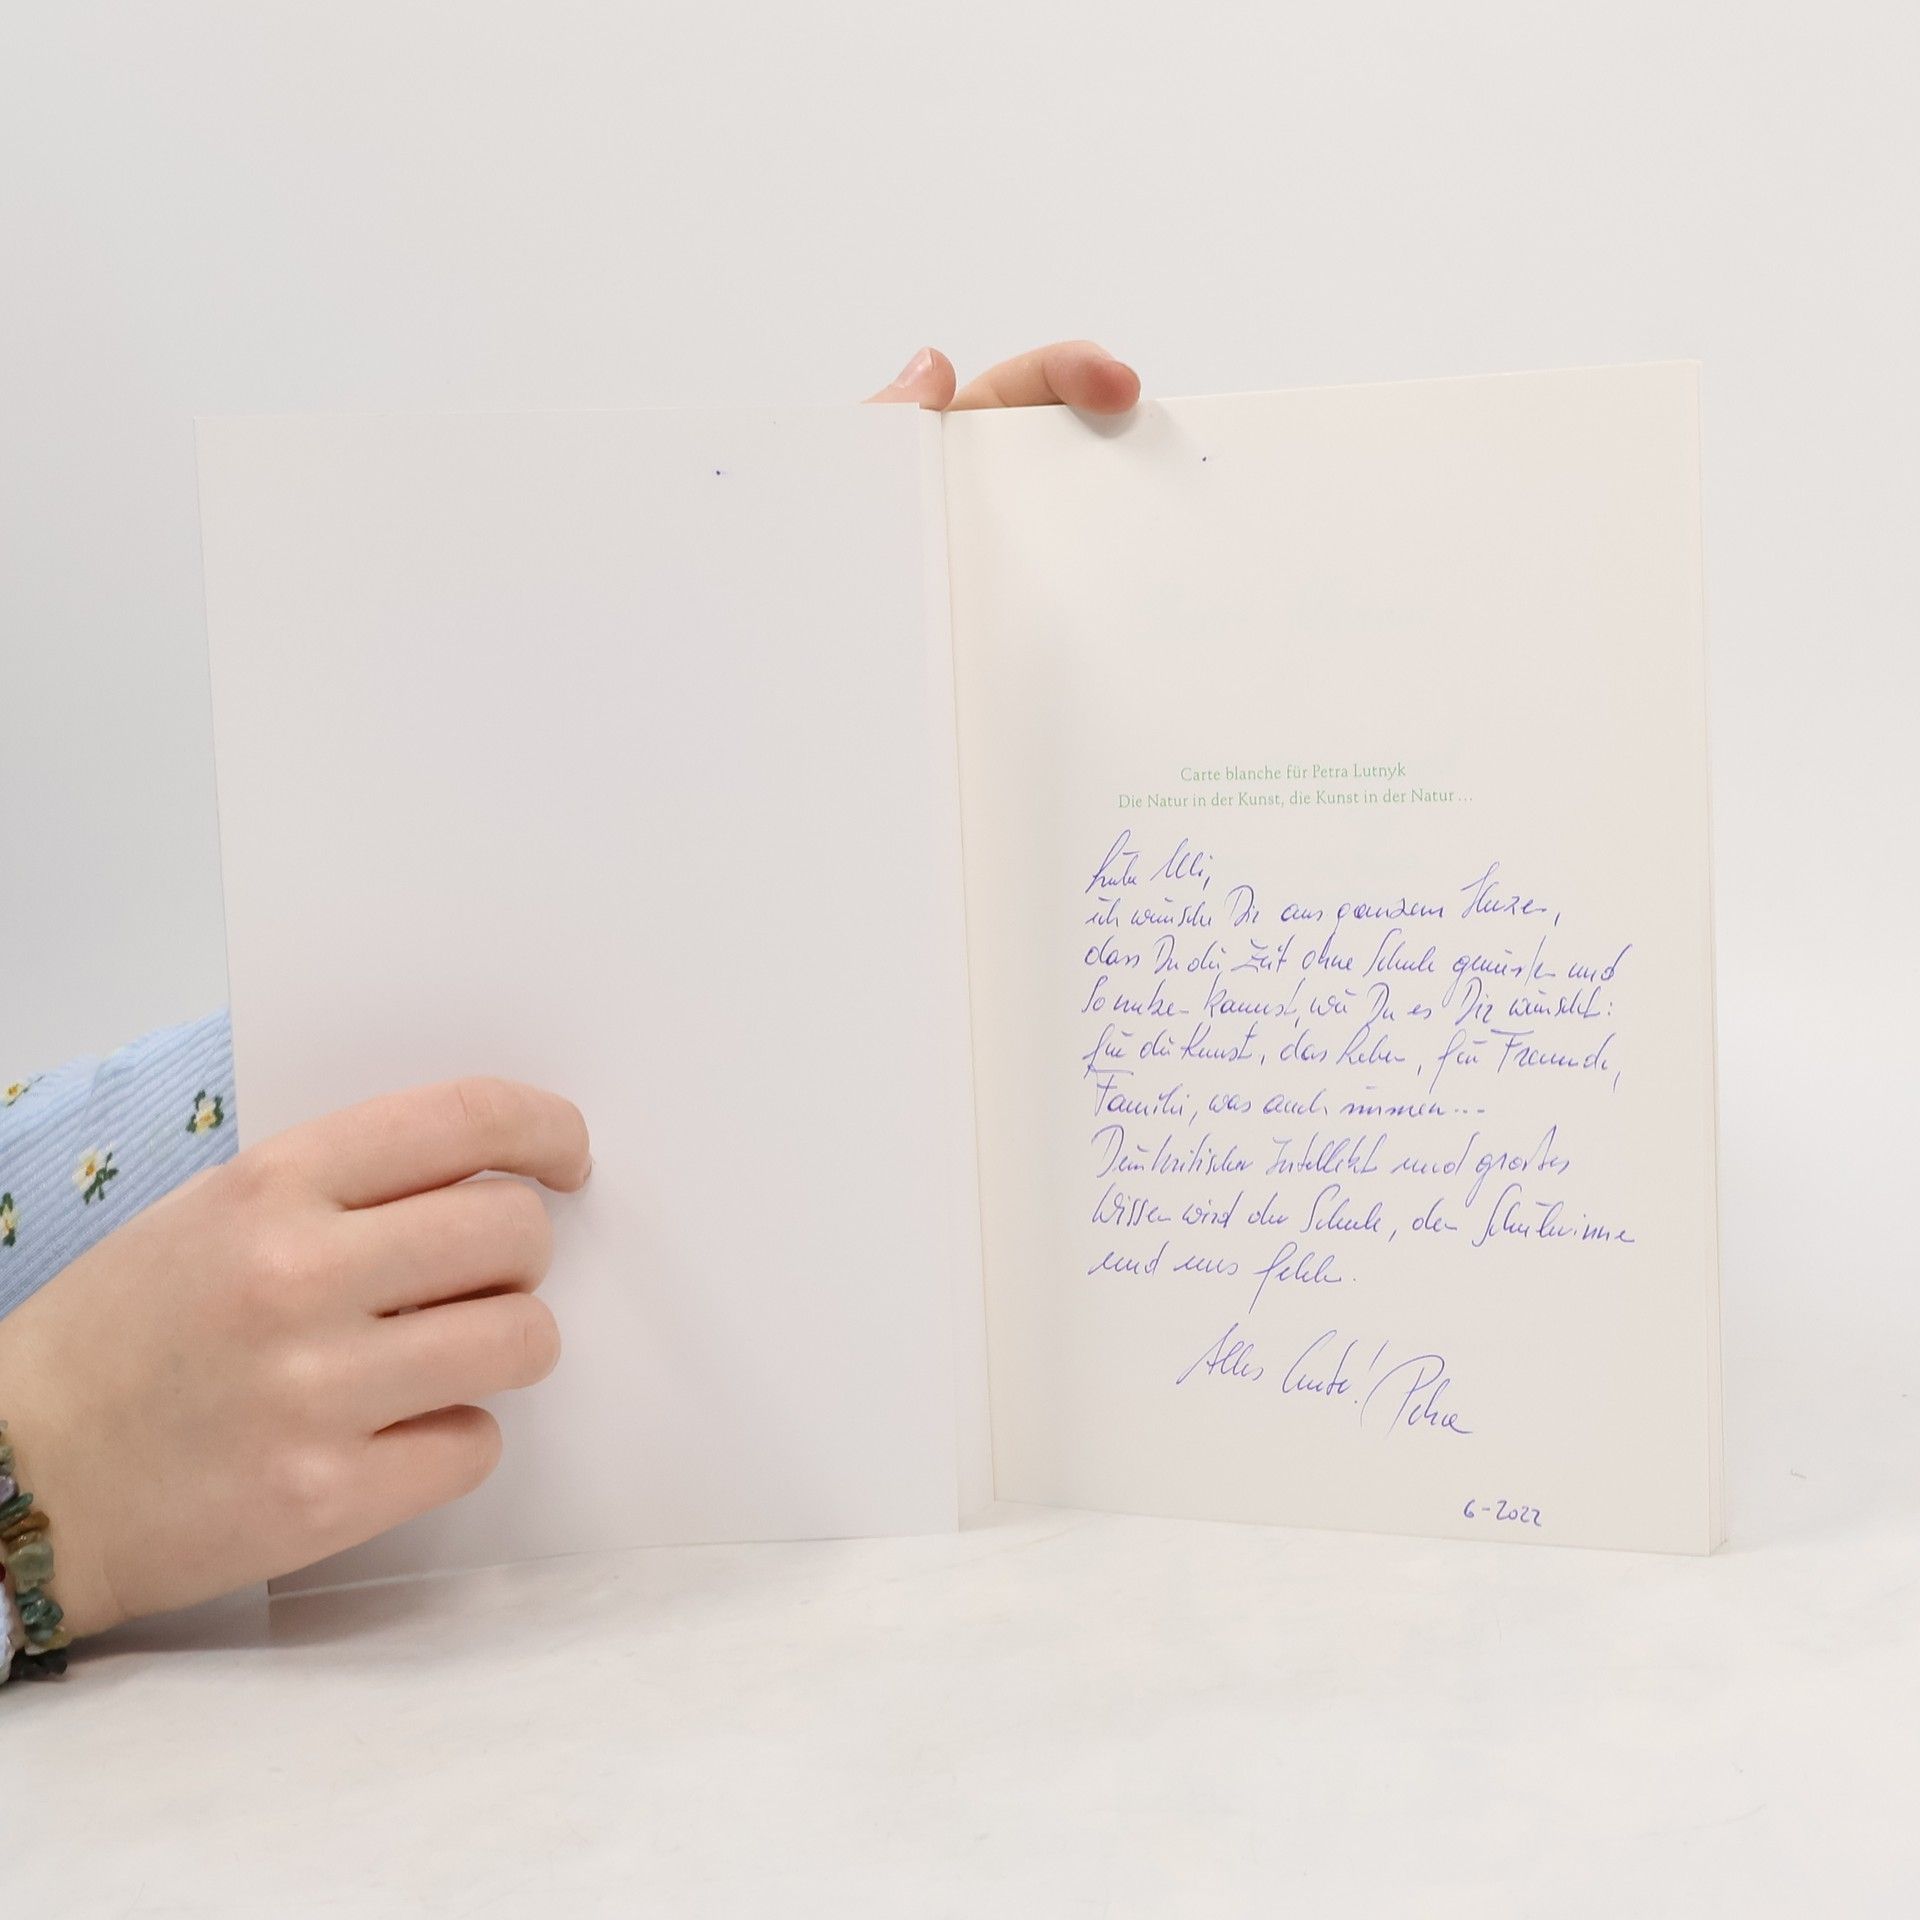 Carte blanche für Petra Lutnyk
Die Natur in der Kunst, die Kunst in der Natur ...
Liebe Ulli,
ich wünsche Dir aus ganzem Herzen,
dass Du die Zeit ohne Schule genießen und
so nutzen kannst, wie Du es Dir wünschst:
für die Kunst, das Leben, für Freunde,
Familie, was auch immer...
Dein kritischer Intellekt und großes
Wissen wird der Schule, den Schülerinnen
und uns fehlen.
Alles Gute! Petra
6-2022